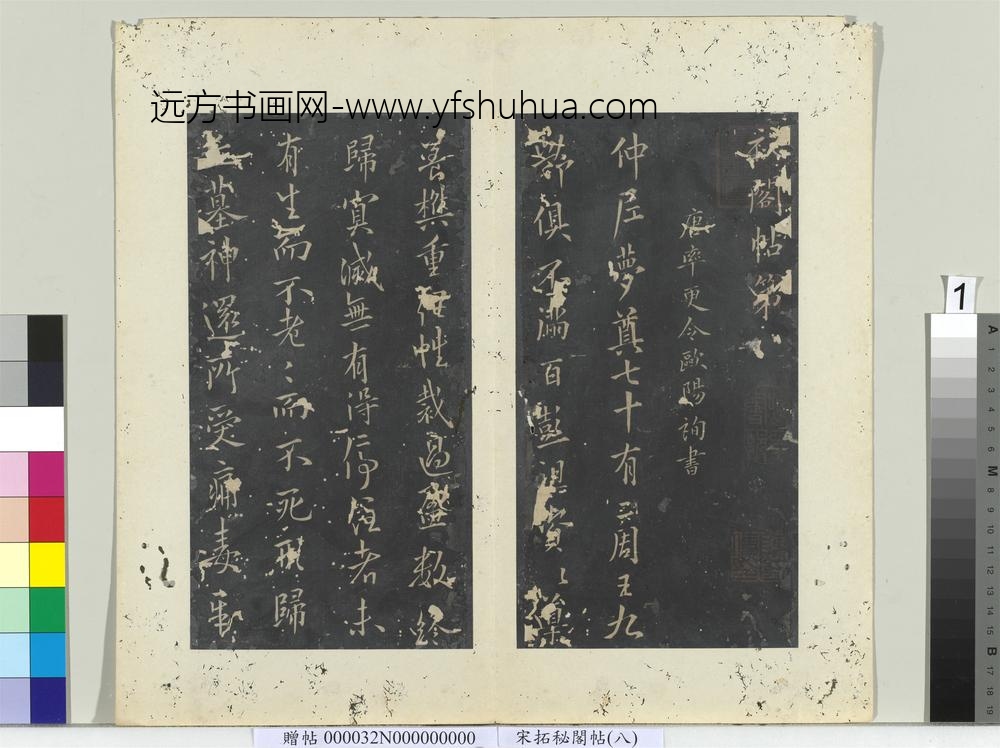 远方书画网-www.yfshuhua.com
秘閣帖第
唐率更令歐陽詢書
仲尼夢奠七十有二周王九
齡俱不滿百彭祖資以樂
養樵重任性裁過盈數終
歸冥滅無有得停住者未
有生而不老老而不死形歸
丘墓神還所受痛毒辛
1
贈帖 000032N000000000 宋拓秘閣帖(八)
A 1 2 3 4 5 6 M 8 9 10 11 12 13 14 15 B 17 18 19